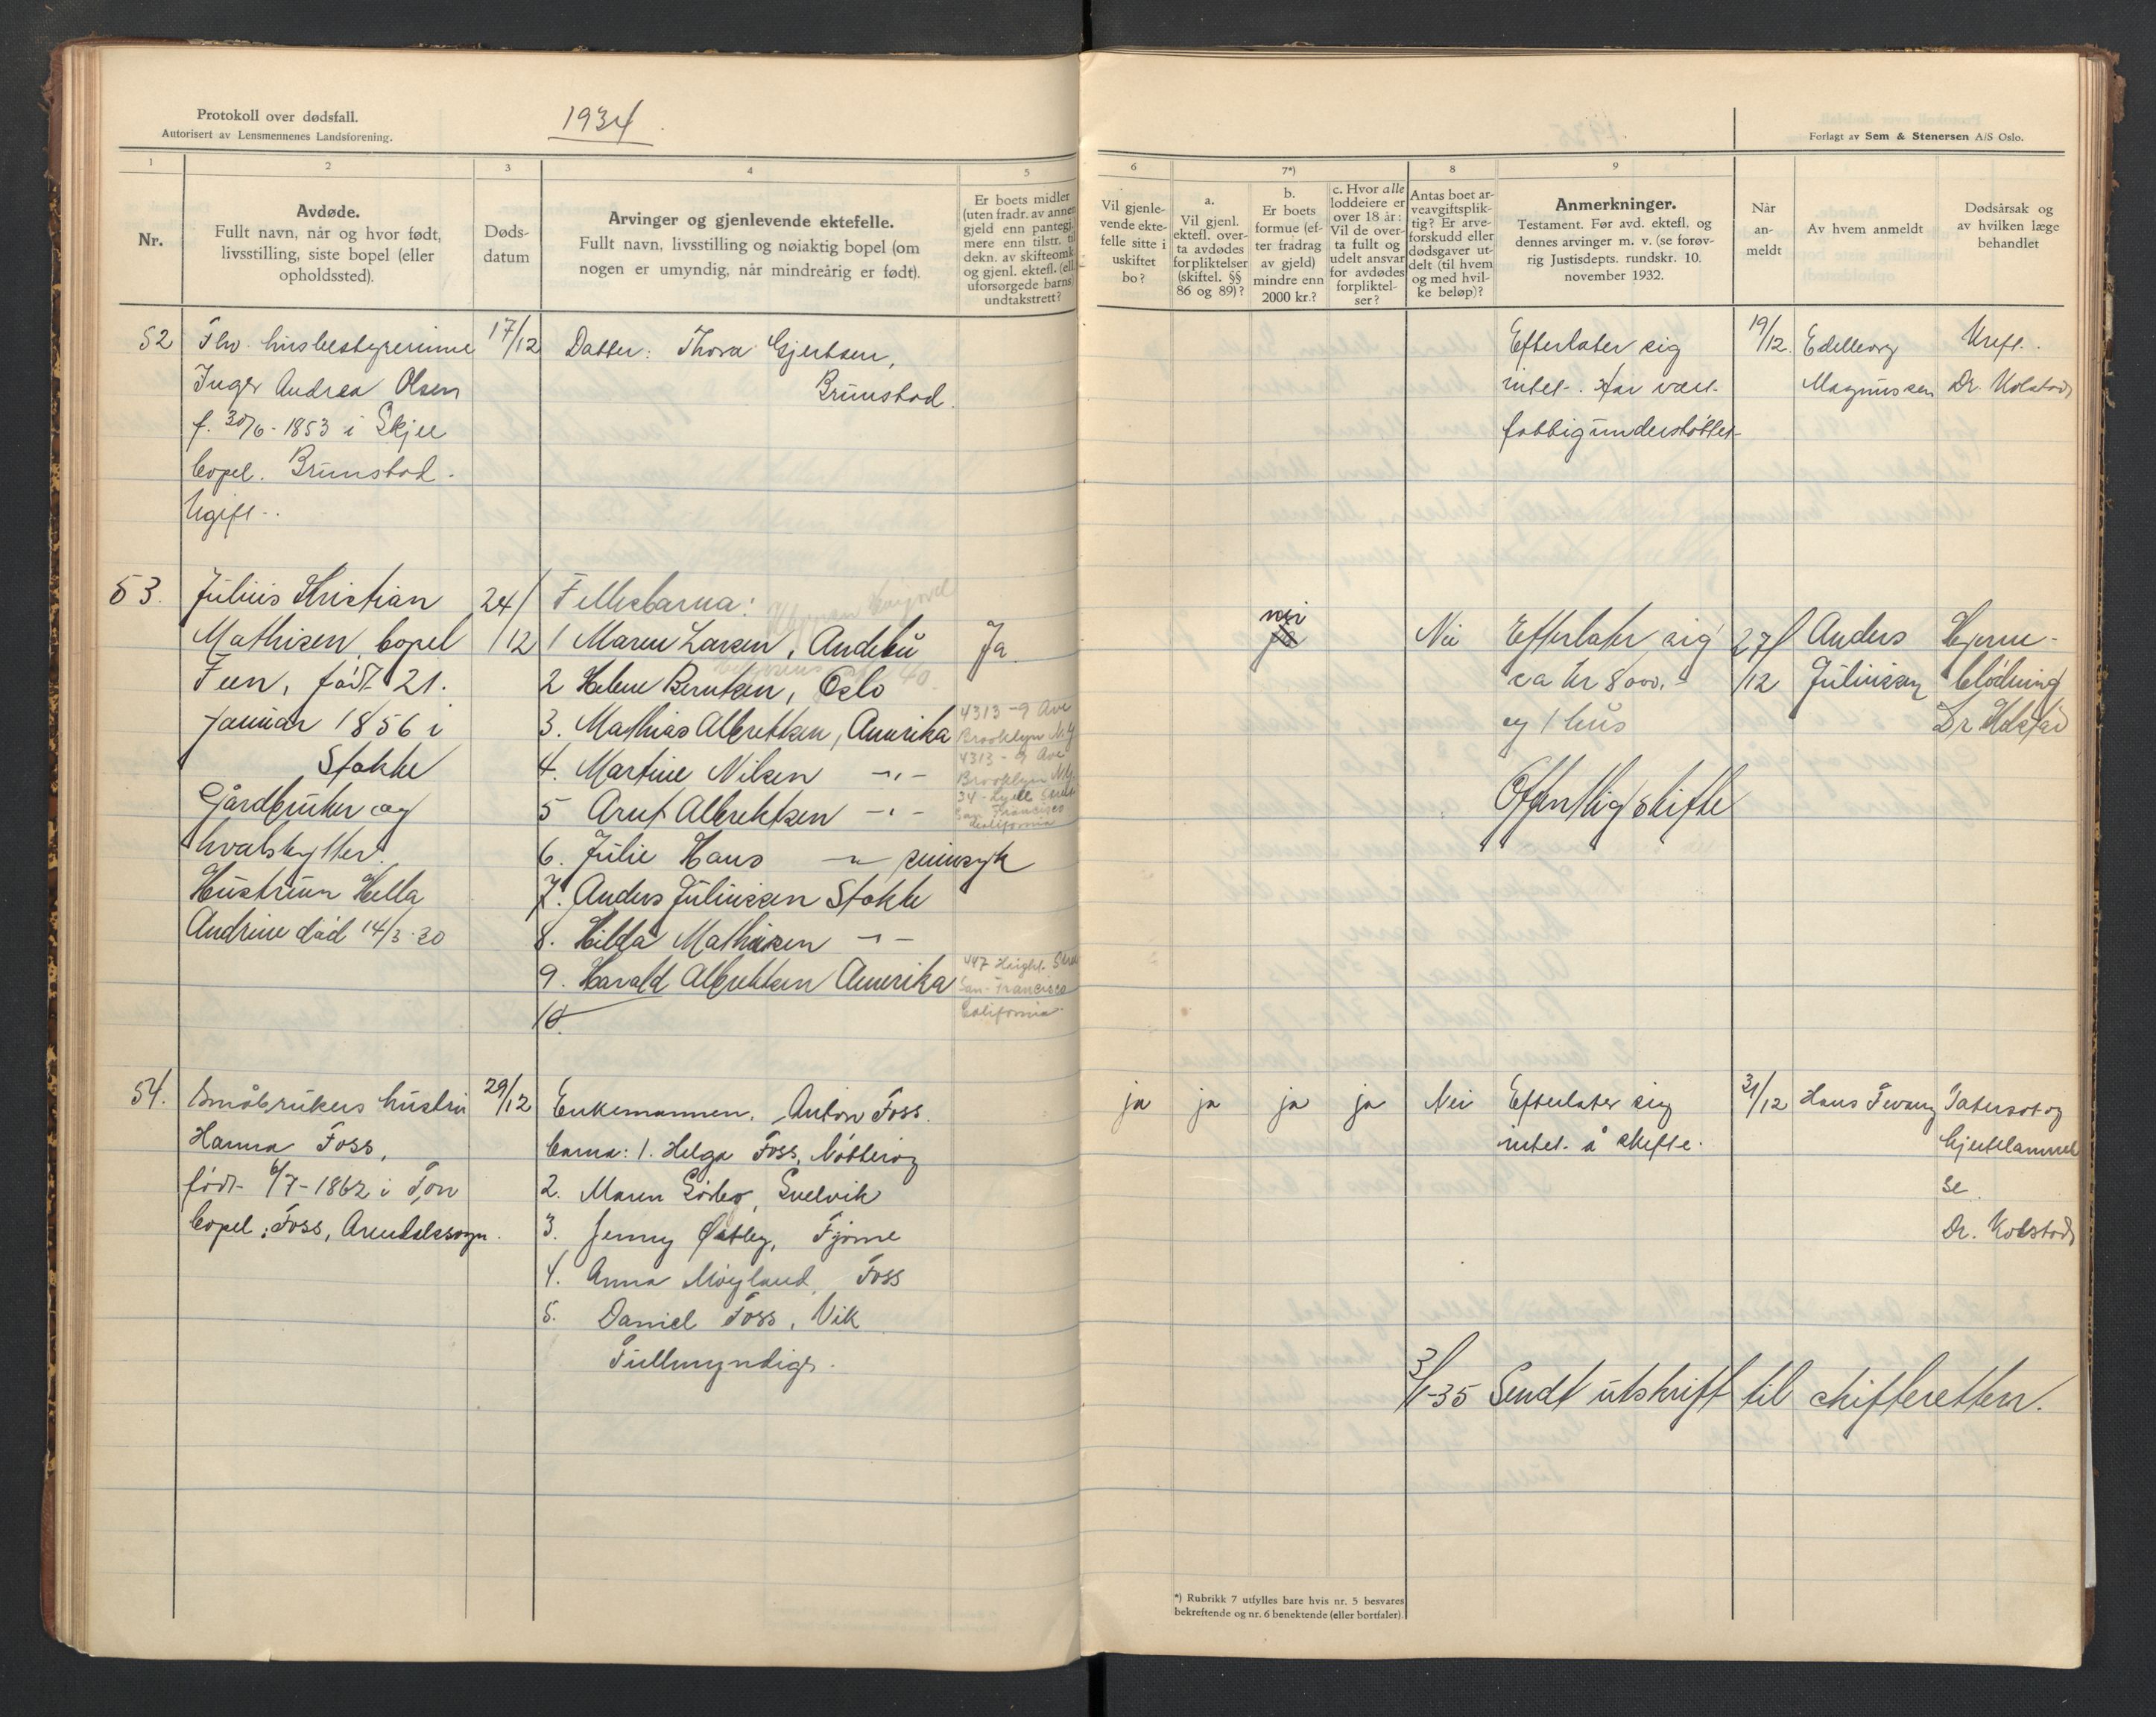 Protokoll over dødsfall.
Autorisert av Lensmennenes Landsforening.
1934
Forlagt av Sem & Stenersen A/S Oslo.
1
2
3
4
5
6
7*)
8
9
Nr.
Avdøde.
Fullt navn, når og hvor født,
livsstilling, siste bopel (eller
opholdssted).
Døds-
datum
Arvinger og gjenlevende ektefelle.
Fullt navn, livsstilling og nøiaktig bopel (om
nogen er umyndig, når mindreårig er født).
Er boets midler
(uten fradr. av annen
gjeld enn pantegj.
mere enn tilstr. til
dekn. av skifteomk.
og gjenl. ektefl. (ell.
uforsørgede barns)
undtakstrett?
Vil gjenle-
vende ekte-
felle sitte i
uskiftet
bo?
a.
Vil gjenl.
ektefl. over-
ta avdødes
forpliktelser
(skiftel. §§
86 og 89)?
b.
Er boets
formue (ef-
ter fradrag
av gjeld)
mindre enn
2000 kr.?
c. Hvor alle
loddeiere er
over 18 år:
Vil de over-
ta fullt og
udelt ansvar
for avdødes
forpliktel-
ser?
Antas boet ar-
veavgiftsplik-
tig? Er arve-
forskudd eller
dødsgaver ut-
delt (til hvem
og med hvil-
ke beløp)?
Anmerkninger.
Testament. Før avd. ektefl. og
dennes arvinger m. v. (se forøv-
rig Justisdepts. rundskr. 10.
november 1932.
Når
an-
meldt
Av hvem anmeldt
Dødsårsak og
av hvilken læge
behandlet
52
Fhv. husbestyrerinne
Inger Andrea Olsen
f. 30/6 - 1853 i Skjee
bopel. Brunstad.
Ugift.
17/12
Datter: Thora Gjertsen,
Brunstad.
Efterlater sig
intet. Har vært
fattigunderstøttet
19/12.
Edelborg
Magnussen
Kreft.
Dr. Kolstad
53.
Julius Kristian
Mathisen, bopel
Feen, født 21.
januar 1856 i
Stokke
Gårdbruker og
hvalskytter.
Hustruen Hella
Andrine død 14/3-30
24/
/12
Fellesbarna:
1 Maren Larsen, Andebu
2 Helene Berntsen, Oslo
3. Mathias Albrektsen, Amerika
4313-9 Ave
Brooklyn N.Y.
4. Martine Nilsen -"-
4313-9 Ave
Brooklyn N.Y.
5 Arnt Albrektsen -"-
San Francisco
California
6. Julie Hans " sinnsyk
7. Anders Juliussen Stokke
8. Hilda Mathisen -"-
9. Harald Albrektsen Amerika
447 Haight Street
San-Francisco
California
10.
Ja.
nei
ja
Nei
Efterlater sig
ca kr 8000.-
og 1 hus
Offentlig skifte
27/
/12
Anders
Juliussen
Hjerne-
blødning
Dr Kolstad
54.
Småbrukers hustru
Hanna Foss,
født 6/7-1862 i Tjøn
bopel: Foss, Arendalssogn.
29/12
Enkemannen, Anton Foss.
barna: 1. Helga Foss, Nøtterøy
2. Maren Sørbø, Svelvik
3. Jenny Østby, Tjøme
4. Anna Møyland, Foss
5. Daniel Foss, Vik
Fullmyndige.
ja
ja
ja
ja
Nei
Efterlater sig
intet å skifte.
31/12
Hans Tvang
og
hjertelammel
se
Dr. Kolstad
3/1-35 Sendt utskrift til skifteretten.
*) Rubrikk 7 utfylles bare hvis nr. 5 besvares
bekreftende og nr. 6 benektende (eller bortfaler).